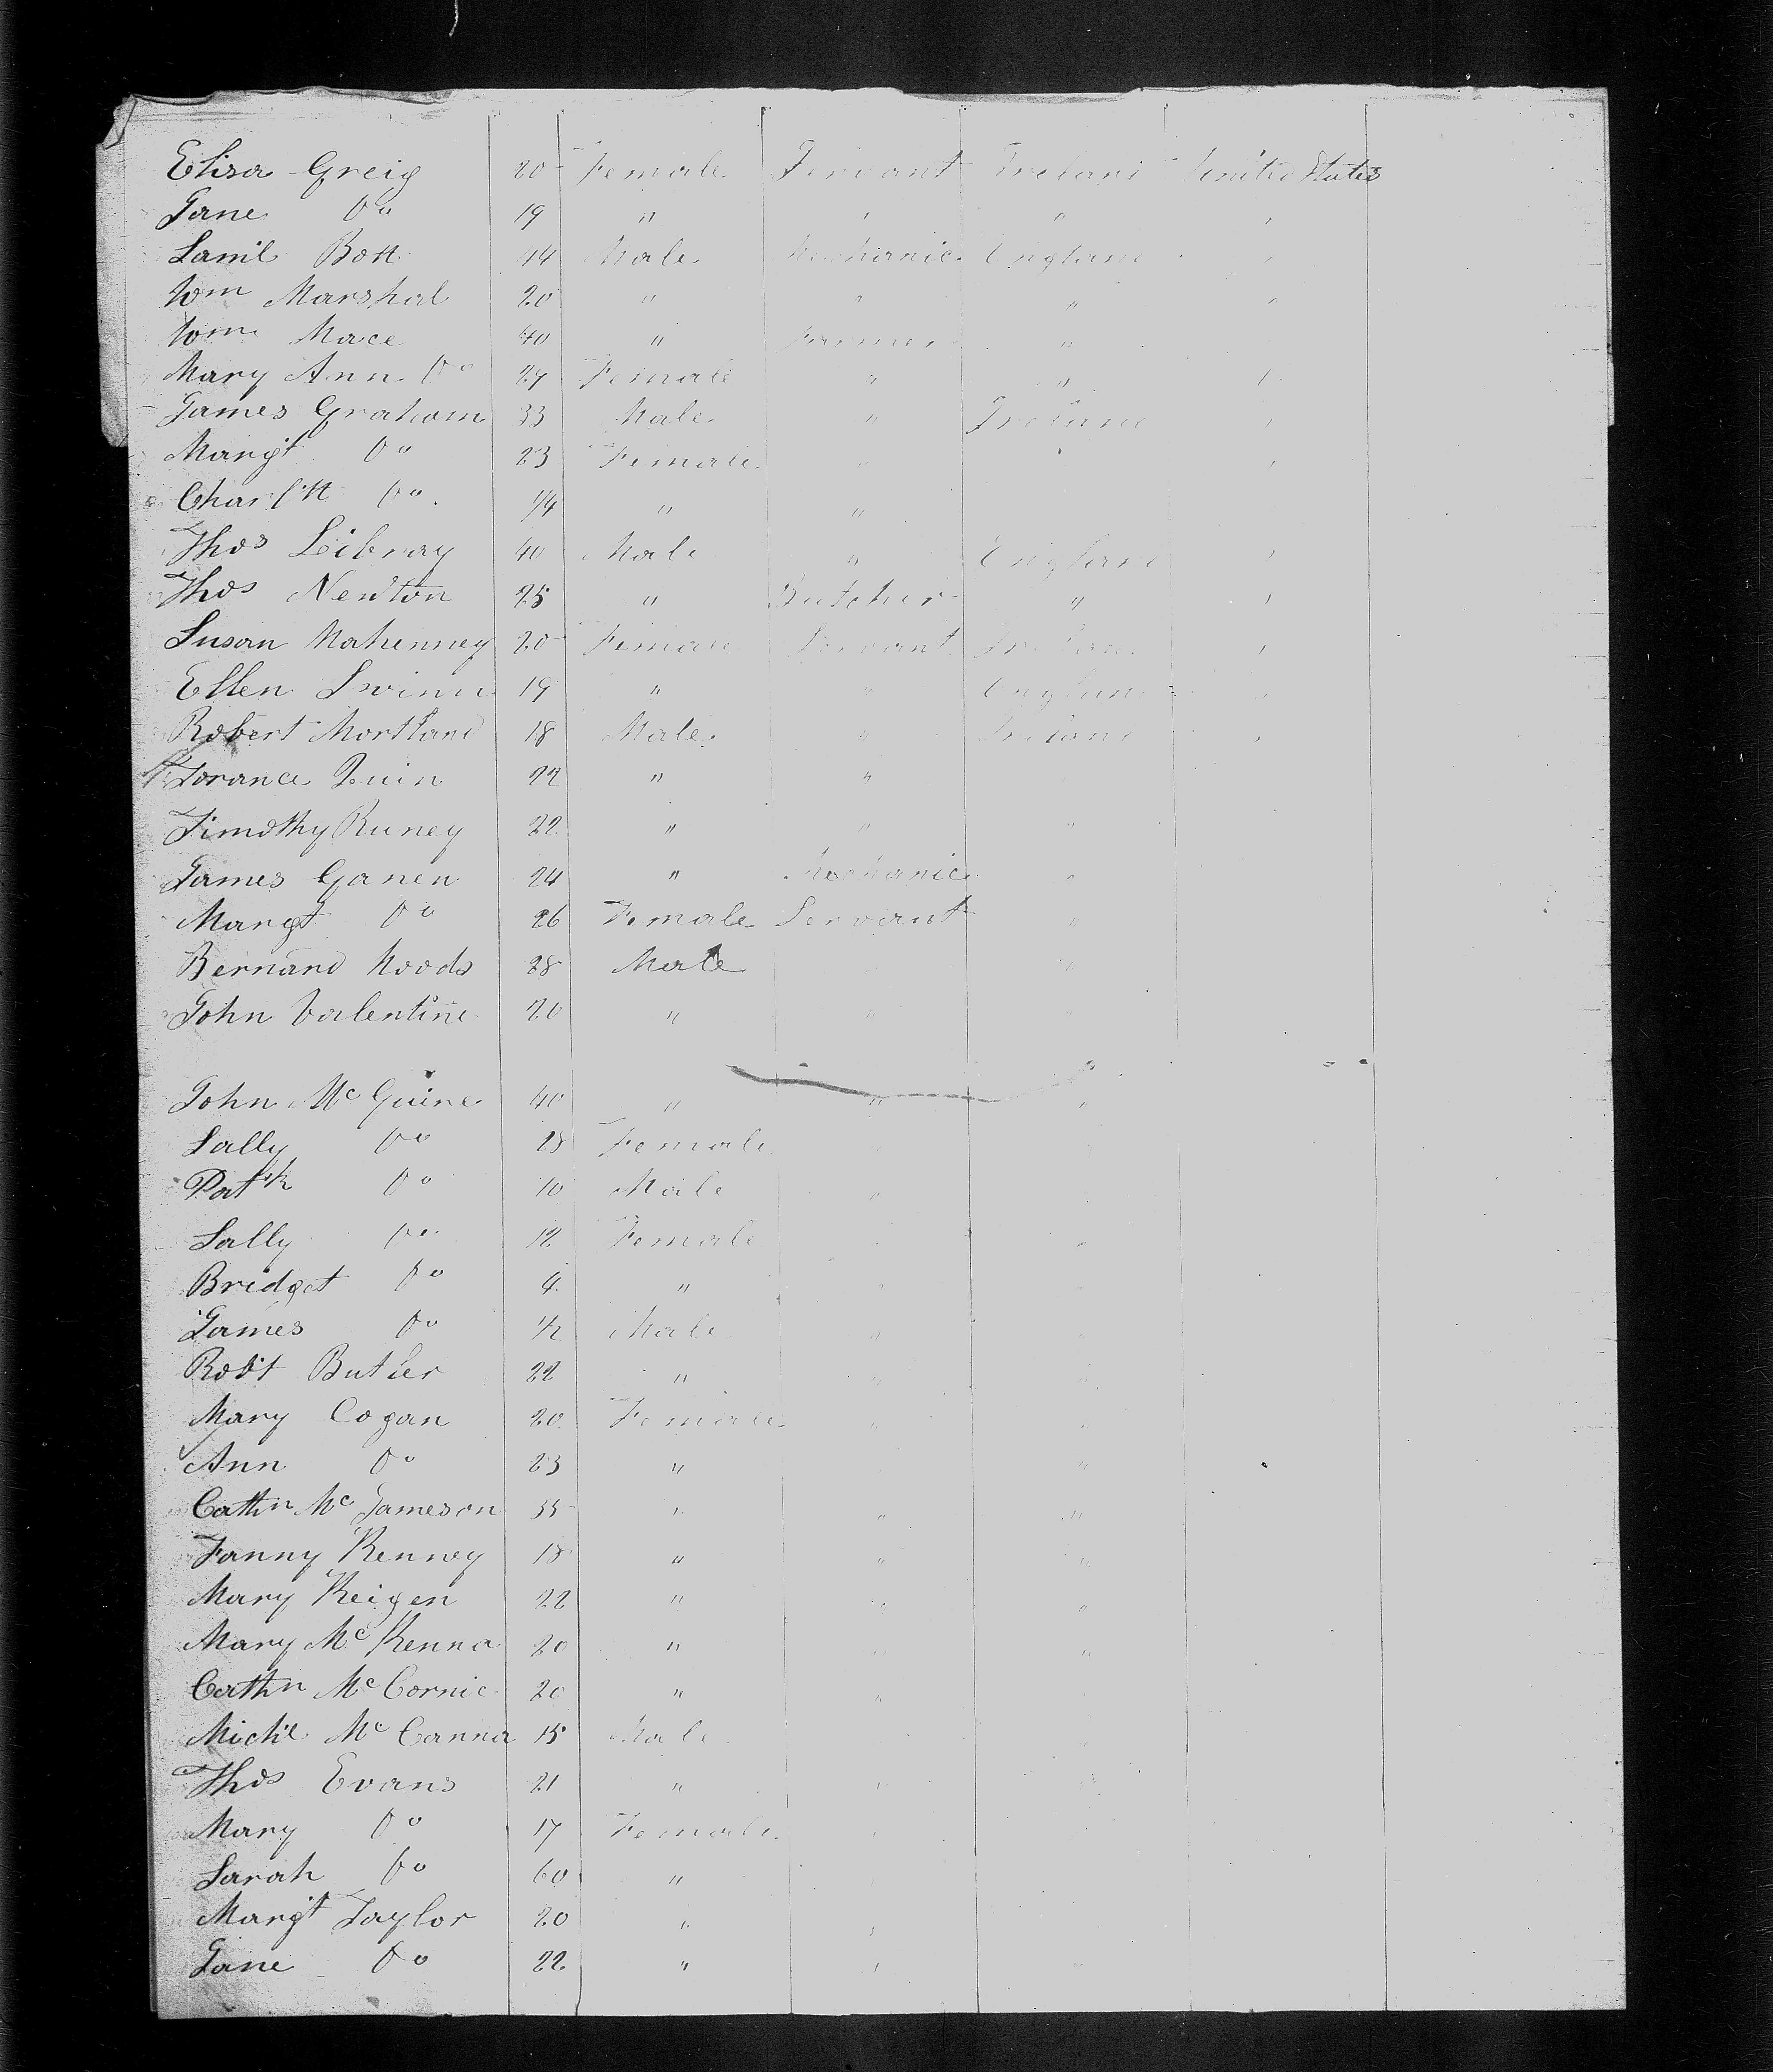 Eliza Greig 20 Female Servant Ireland United States
Jane Do 19 " " " "
Saml Bott 44 Male Mechanic England "
Wm Marshal 20 " " " "
Wm Mace 40 " Farmer "
Mary Ann Do 24 Female " " "
James Graham 33 Male " Ireland "
Margt Do 23 Female "
Charltt Do 1/4 " "
Thos Leibray 40 Male " England "
Thos Newton 25 " Butcher " "
Susan Mahenney 20 Female Servant Ireland "
Ellen Swinn 19 " " England "
Robert Mortland 18 Male " Ireland "
Torance Quin 22 " "
Timothy Runey 22 " " "
James Ganen 24 " Mechanic "
Margt Do 26 Female Servant "
Bernard Woods 28 Male "
John Valentine 20 " "
John McGuine 40 " " "
Sally Do 28 Female
Patk Do 10 Male "
Sally Do 12 Female "
Bridget Do 4 " "
James Do 1/2 Male "
Robt Butler 22 " " "
Mary Cogan 20 Female " "
Ann Do 23 " "
Cathn McJameson 35 " " "
Fanny Kenney 18 " " "
Mary Keigen 22 " " "
Mary McKenna 20 " "
Cathn McCornic 20 " "
Michl McCanna 15 Male
Thos Evans 21 " "
Mary Do 17 Female "
Sarah Do 60 "
Margt Taylor 20 " "
Jane Do 22 " "